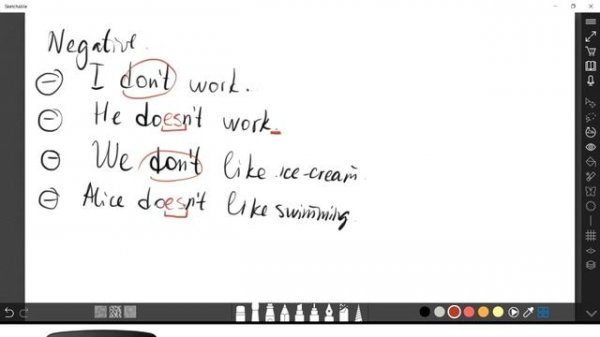 Sketchable
Negative.
I don't work.
He doesn't work.
We don't like ice-cream.
Alice doesn't like swimming.